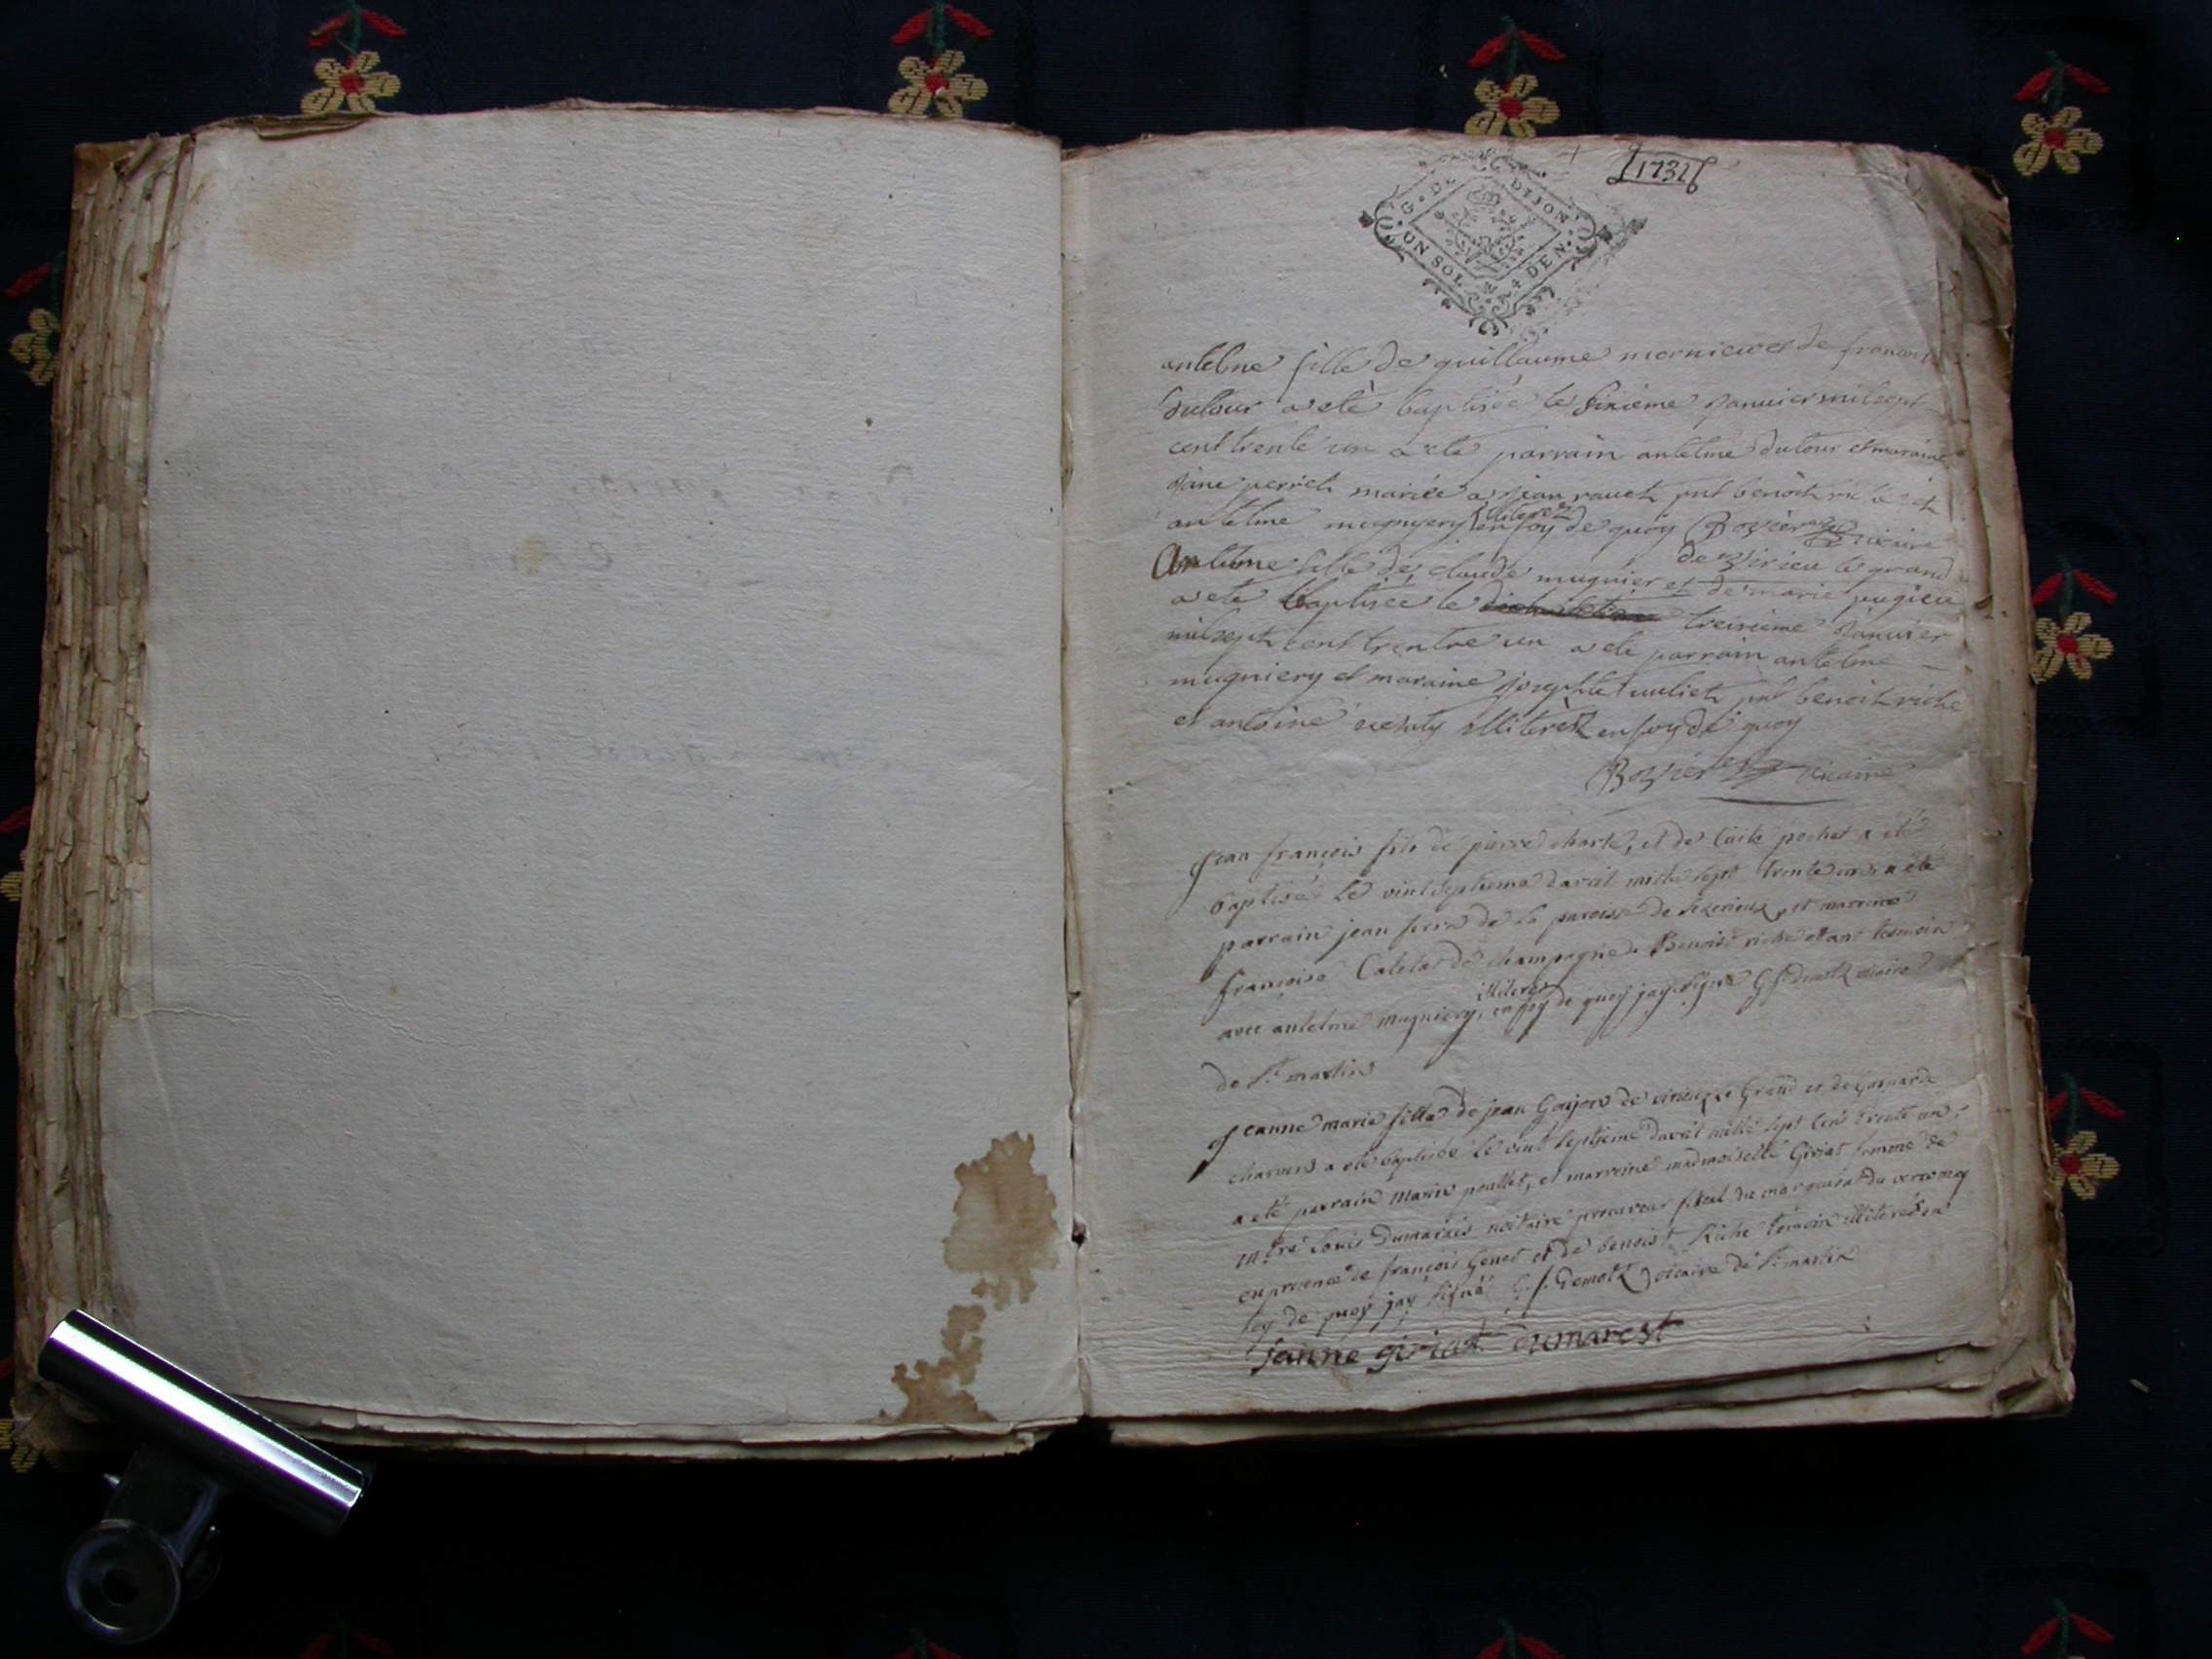 1731
G. DE DIJON
UN SOL 4 DEN.
antelme fille de guillaume mornieu et de francoise
dutour a eté baptisée le sixième janvier mil sept
cent trente un a eté parrain antelme dutour et maraine
jane perret mariée a jean ravet pnt benoit riche et
antelme mugnyery illiterez en foy de quoy Bozier vicaire
de virieu le grand
Antelme fille de claude mugnier et de marie pugieu
a eté baptisée le treisième janvier
mil sept cent trentre un a eté parrain antelme
mugniery et maraine josephte juliet pnt benoit riche
et antoine illiterez en foy de quoy
Bozier vicaire
Jean françois fils de pierre charle, et de pochet a été
baptisé le vint septieme davril mille sept trente un a été
parrain jean serra de la paroisse de et marreine
françoise Catelat de champagne Benoist riche etant temoin
avec antelme mugniery, illiteres en foy de quoy jay signé G f demotz vicaire
de St martin
Jeanne marie fille de jean Goujon de virieux le Grand et de Gasparde
charvin a eté baptisée le vint septieme davril mille sept cent trente un,
a eté parrain Marin poullet, et marreine madmoiselle Giriat femme de
mtre Louis Dumarais nottaire procureur fiscal du marquisat du verromey
en presence de françois Genet et de benoist Riche temoin illiteres en
foy de quoy jay signé G. f. Demotz vicaire de St martin
janne giriat dumarest